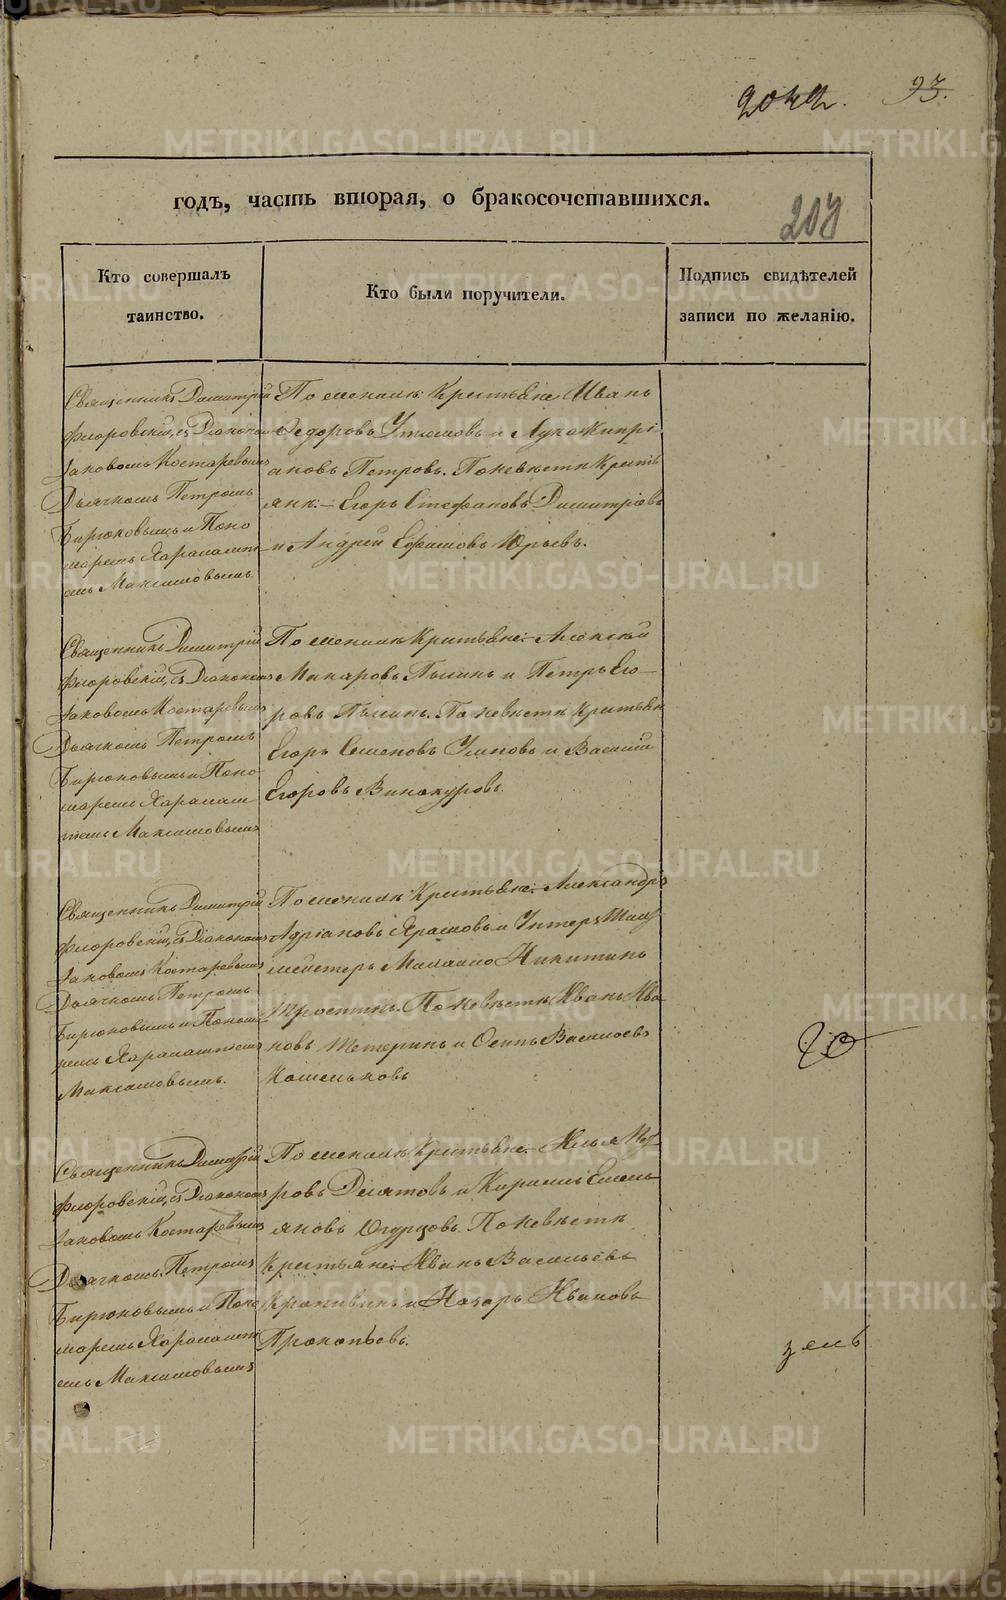 93.
годъ, часть вторая, о бракосочетавшихся.
208
Кто совершалъ
таинство.
Кто были поручители.
Подпись свидѣтелей
записи по желанію.
Священникъ Димитрій
Флоровскій, съ Діакономъ
Іаковомъ Костаревымъ
Дьячкомъ Петромъ
Бирюковымъ и Поно
маремъ Харалампі
емъ Максимовымъ
По женихѣ: Крестьяне Иванъ
Ѳедоровъ Утюмовъ и Лука Кипрі
ановъ Петровъ. По невѣстѣ Кресть
яне:- Егоръ Стефановъ Димитріевъ
и Андрей Ефимовъ Юрьевъ.
Священникъ Димитрій
Флоровскій, съ Діакономъ
Іаковомъ Костаревымъ
Дьячкомъ Петромъ
Бирюковымъ и Поно
маремъ Харалам
піемъ Максимовымъ
По женихѣ Крестьяне:- Алексѣй
Макаровъ Пьминъ и Петръ Его
ровъ Пьминъ. По невѣстѣ Крестьяне
Егоръ Семеновъ Умновъ и Василій
Егоровъ Винокуровъ.
Священникъ Димитрій
Флоровскій, съ Діакономъ
Іаковомъ Костаревымъ
Дьячкомъ Петромъ
Бирюковымъ и Понома
ремъ Харалампіемъ
Максимовымъ.
По женихѣ Крестьяне:- Александръ
Адріановъ и Унтеръ Шихт
мейстеръ Никитинъ
По невѣстѣ Иванъ Ива
новъ Тетеринъ и Осипъ Васильевъ
Кошеньковъ
Священникъ Димитрій
Флоровскій, съ Діакономъ
Іаковомъ Костаревымъ
Дьячкомъ Петромъ
Бирюковымъ и Поно
маремъ Харалампі
емъ Максимовымъ
По женихѣ Крестьяне:- Илья
ровъ Девятовъ и Кирилъ Емель
яновъ Огурцовъ. По невѣстѣ
Крестьяне:- Иванъ Васильевъ
Крапивинъ и Назаръ Ивановъ
Прокопьевъ.
METRIKI.GASO-URAL.RU